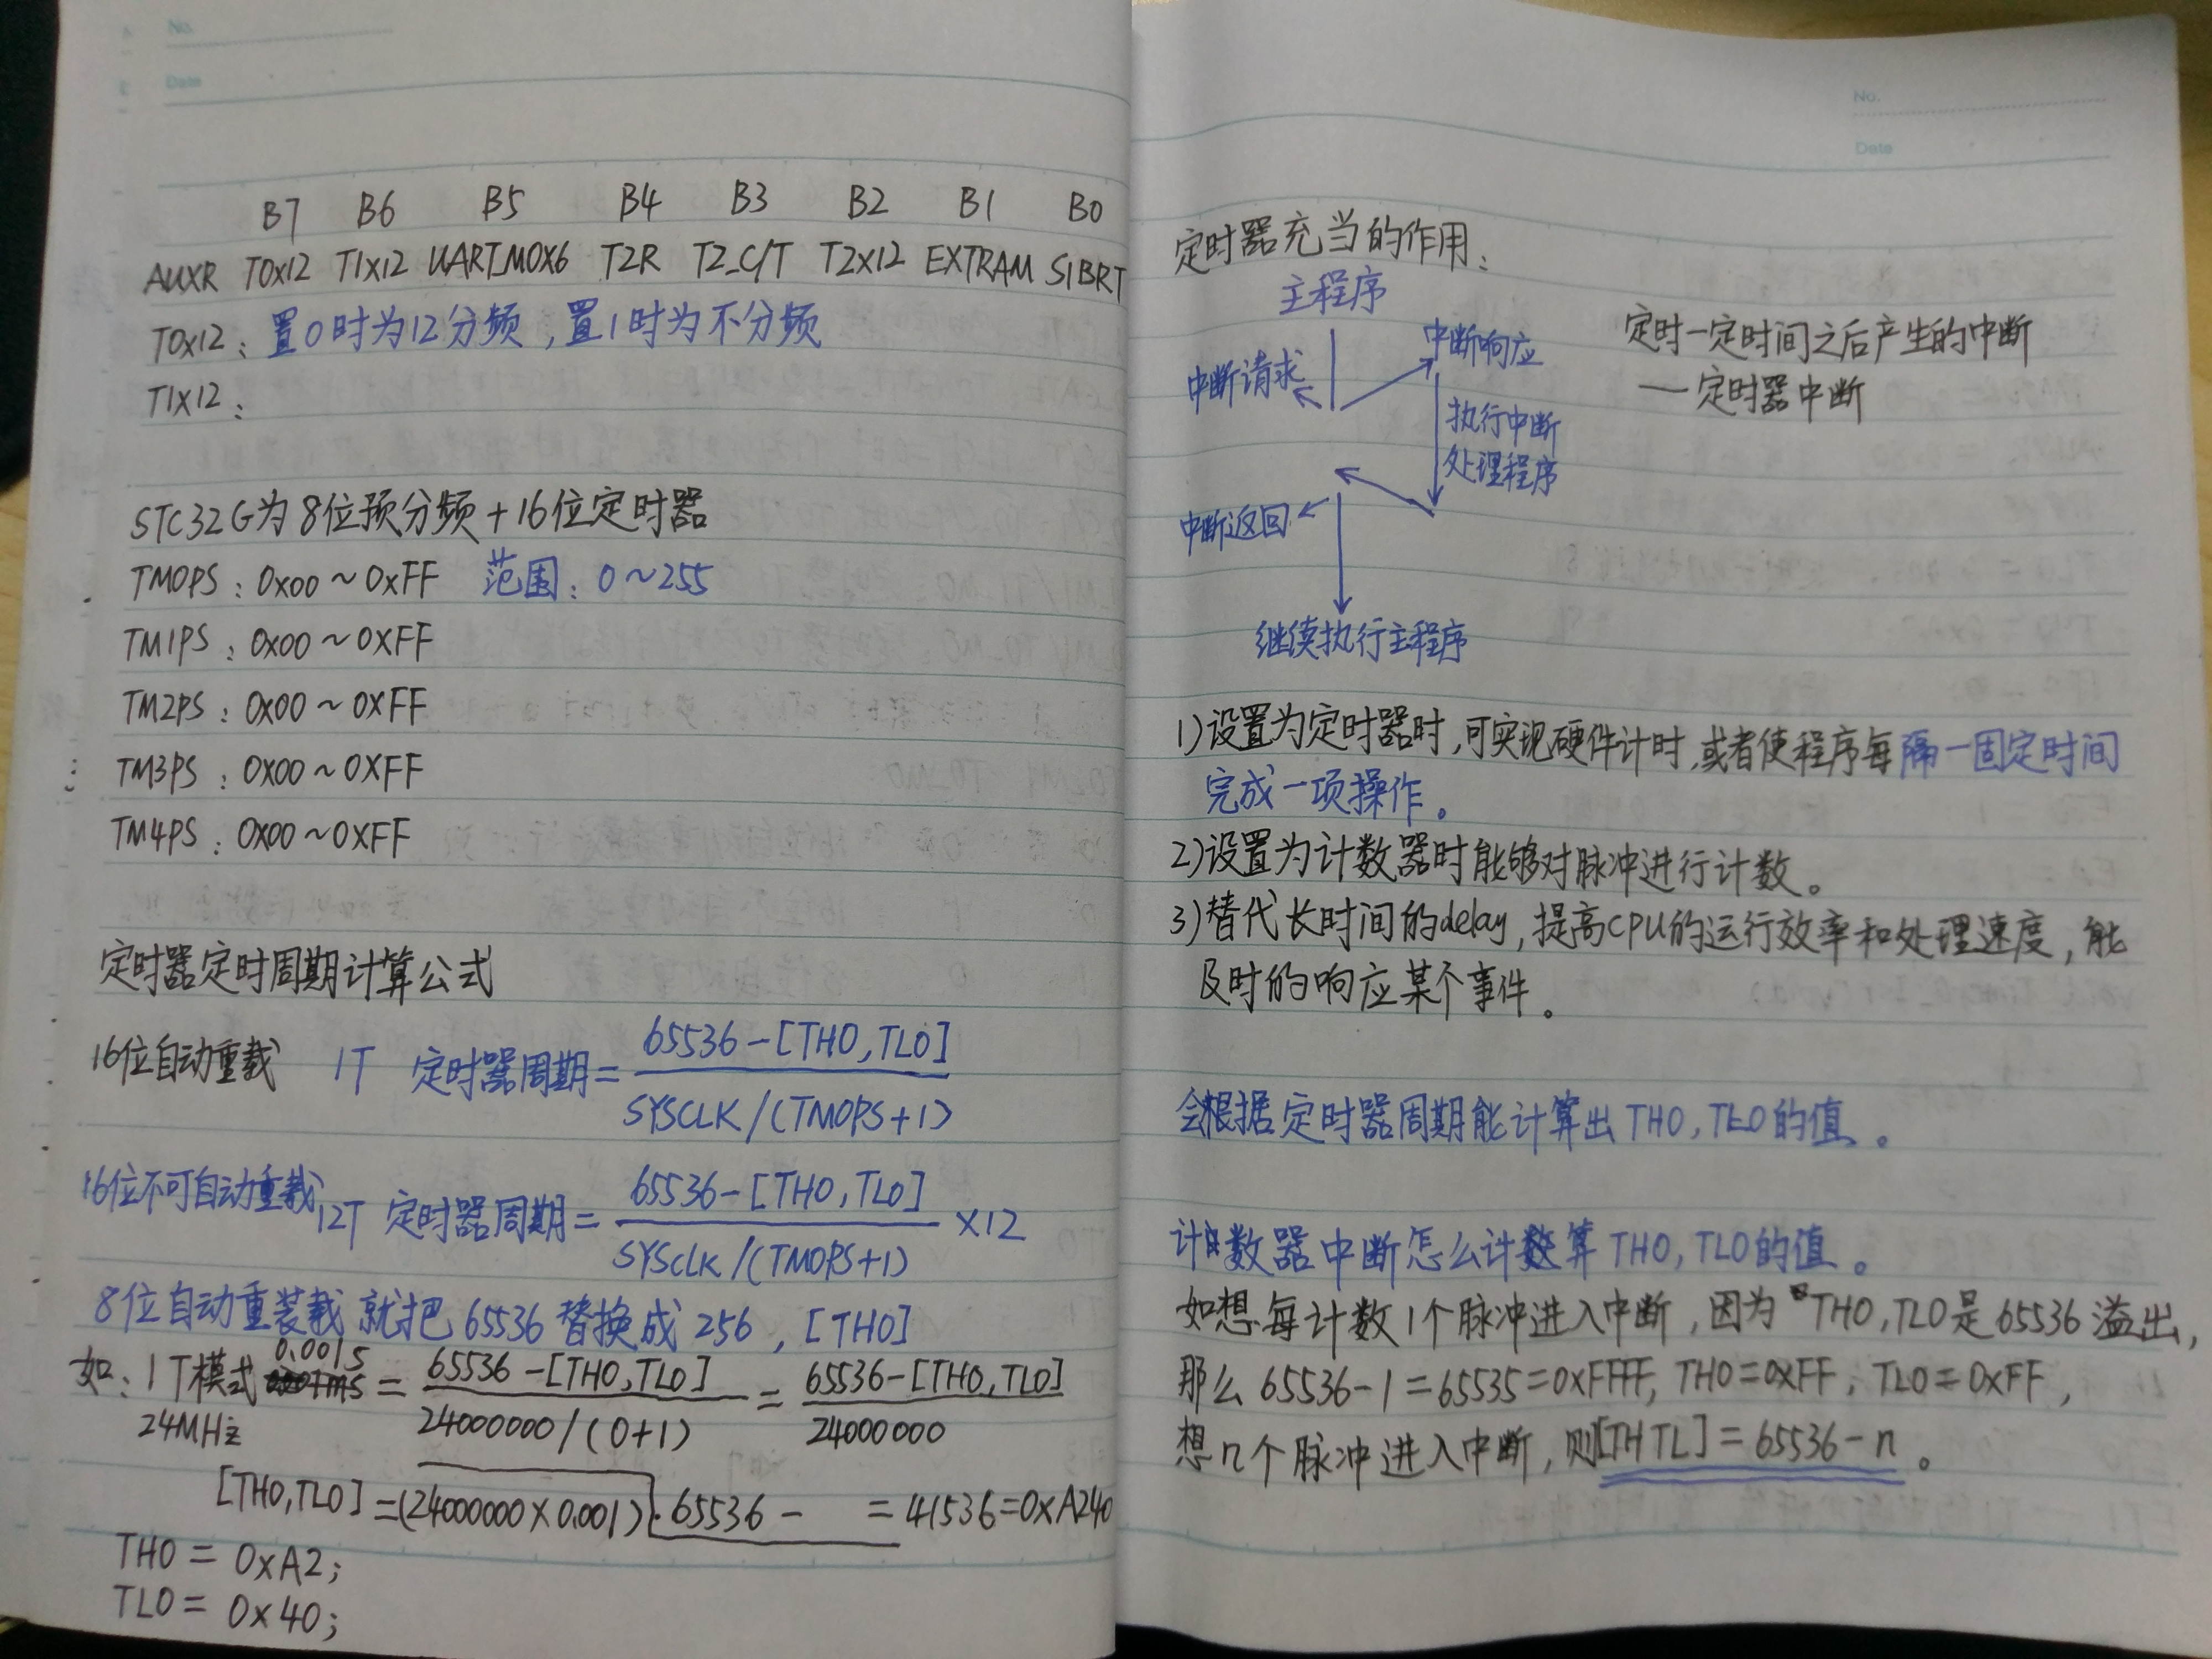 No.
Date
B7 B6 B5 B4 B3 B2 B1 B0
AUXR T0x12 T1x12 UART_M0X6 T2R T2_C/T T2x12 EXTRAM S1BRT
T0x12：置0时为12分频，置1时为不分频
T1x12：
STC32G为8位预分频+16位定时器
TM0PS：0x00～0xFF 范围：0～255
TM1PS：0x00～0xFF
TM2PS：0x00～0XFF
TM3PS：0x00～0XFF
TM4PS：0x00～0xFF
定时器定时周期计算公式
16位自动重载 1T 定时器周期= 65536-[TH0,TL0]
SYSCLK/(TM0PS+1)
16位不可自动重载 12T 定时器周期= 65536-[TH0,TL0] ×12
SYSCLK/(TM0PS+1)
8位自动重装载 就把65536替换成256，[TH0]
如：1T模式 0.001s = 65536-[TH0,TL0] = 65536-[TH0,TL0]
24MHz 24000000/(0+1) 24000000
[TH0,TL0]=(24000000×0.001) 65536- =41536=0xA240
TH0=0xA2;
TL0=0x40;
No.
Date
定时器充当的作用：
主程序
中断请求 中断响应
执行中断
处理程序
中断返回
继续执行主程序
定时一定时间之后产生的中断
—定时器中断
1)设置为定时器时，可实现硬件计时，或者使程序每隔一固定时间
完成一项操作。
2)设置为计数器时能够对脉冲进行计数。
3)替代长时间的delay，提高CPU的运行效率和处理速度，能
及时的响应某个事件。
会根据定时器周期能计算出TH0,TL0的值。
计数器中断怎么计算TH0,TL0的值。
如想每计数1个脉冲进入中断，因为TH0,TL0是65536溢出，
那么65536-1=65535=0xFFFF, TH0=0xFF，TL0=0xFF，
想n个脉冲进入中断，则[TH TL]=65536-n。